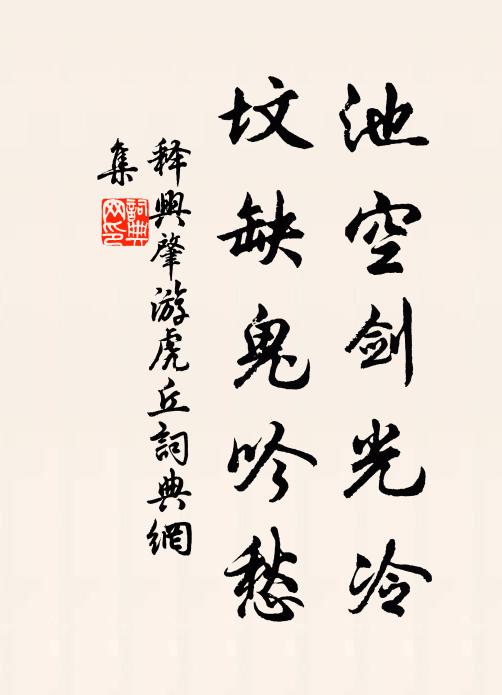 池空剑光冷
坟缺鬼吟愁
释興肇游虎丘詞典網
集
詞典
网印